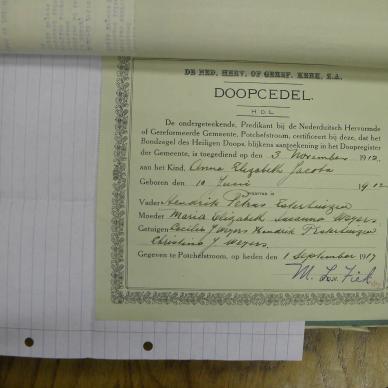 DE NED. HERV. OF GEREF. KERK, Z.A.
DOOPCEDEL.
De ondergeteekende, Predikant bij de Nederduitsch Hervormde
of Gereformeerde Gemeente, Potchefstroom, certificeert bij deze, dat het
Bondzegel des Heiligen Doops, blijkens aanteekening in het Doopregister
der Gemeente, is toegediend op den 3 November 1912
aan het Kind, Anna Elizabeth Jacoba
Geboren den 10 Juni 1912
Vader Hendrik Petrus Esterhuizen
Moeder Maria Elizabeth Susanna Weyers
Getuigen Cecilia J Weyers Hendrik P Esterhuizen
Christina J Weyers.
Gegeven te Potchefstroom, op heden den 1 September 1917